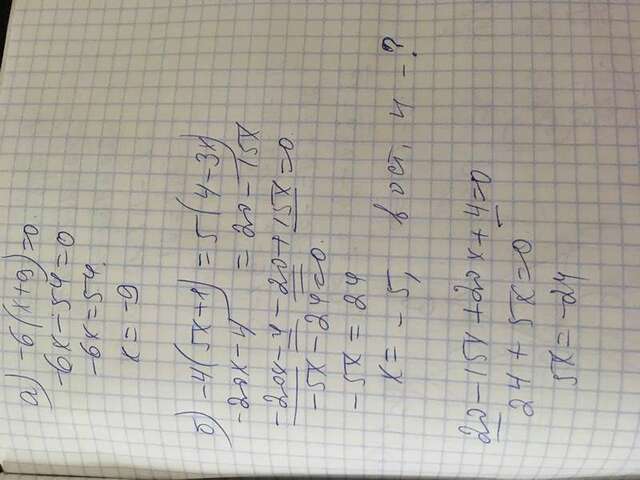 а) -6(x+9)=0
-6x-54=0
-6x=54.
x=-9
б) -4(5x+1)=5(4-3x)
-20x-4 = 20-15x
-20x-4-20+15x=0
-5x-24=0.
-5x=24
x=-5, в ост. 4 -?
20-15x+20x+4=0
24+5x=0
5x=-24